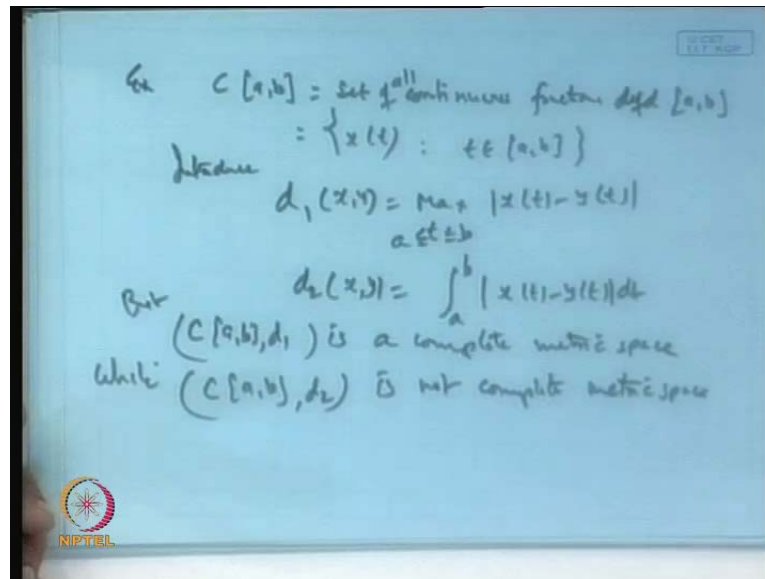 Ex C[a,b] = set of all continuous functions defd [a,b]
= { x(t) : t ∈ [a,b] }
Introduce
d₁(x,y) = Max |x(t) - y(t)|
a ≤ t ≤ b
d₂(x,y) = ∫ₐᵇ |x(t) - y(t)| dt
But
(C[a,b], d₁) is a complete metric space
While (C[a,b], d₂) is not complete metric space
NPTEL